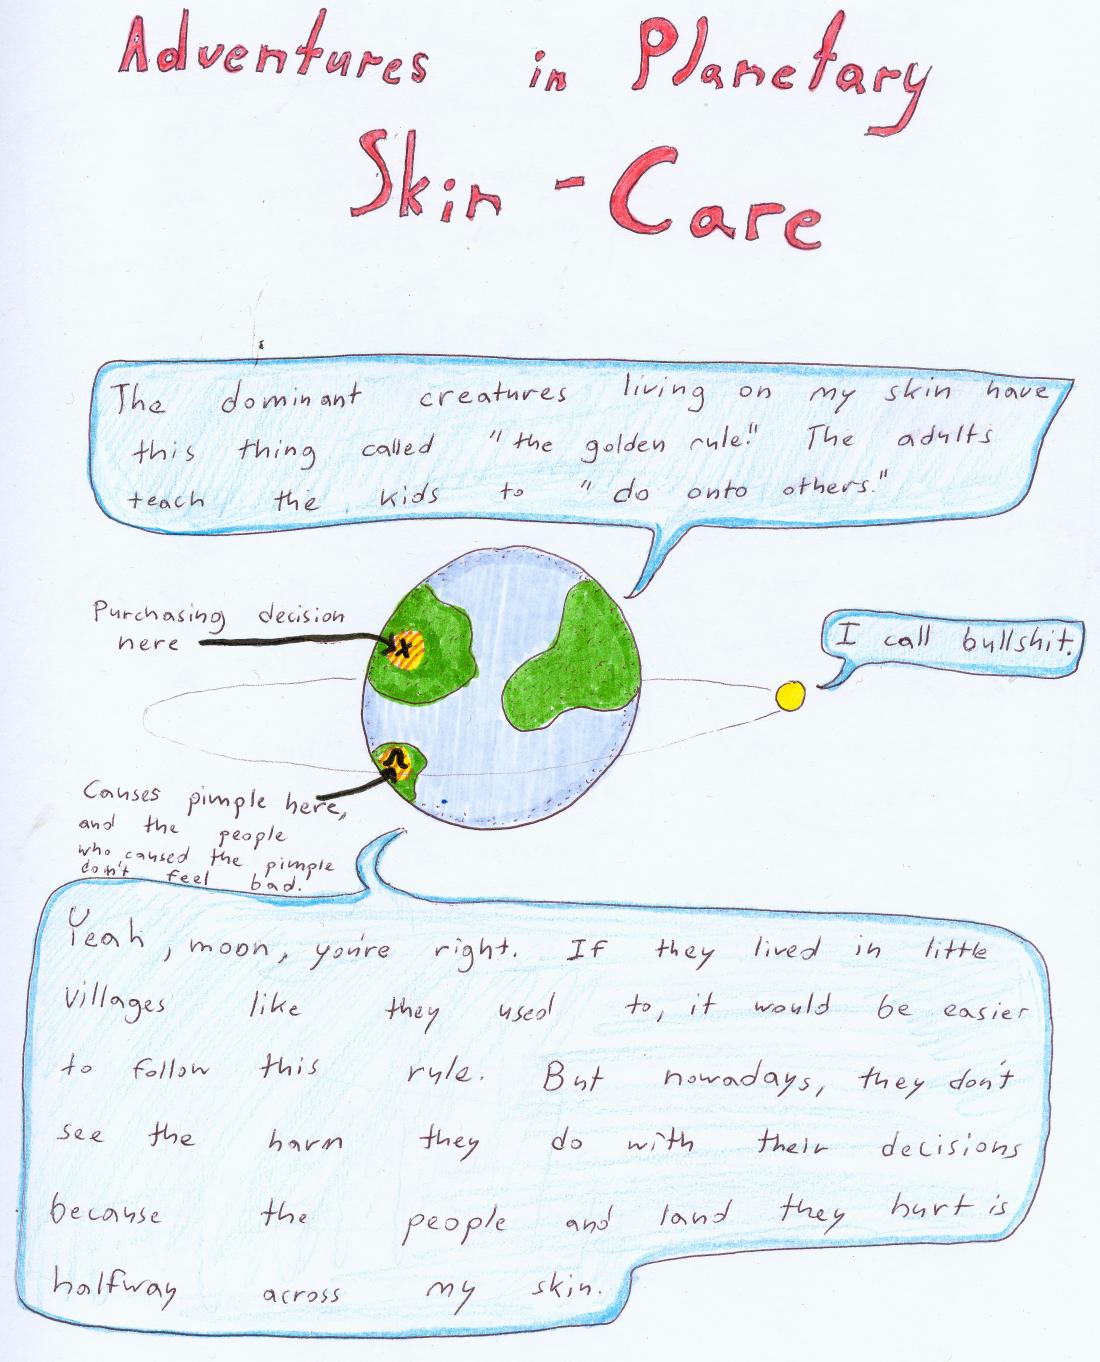 Adventures in Planetary
Skin-Care
The dominant creatures living on my skin have
this thing called "the golden rule." The adults
teach the kids to "do onto others."
Purchasing decision
here
I call bullshit.
Causes pimple here,
and the people
who caused the pimple
don't feel bad.
Yeah, moon, you're right. If they lived in little
villages like they used to, it would be easier
to follow this rule. But nowadays, they don't
see the harm they do with their decisions
because the people and land they hurt is
halfway across my skin.